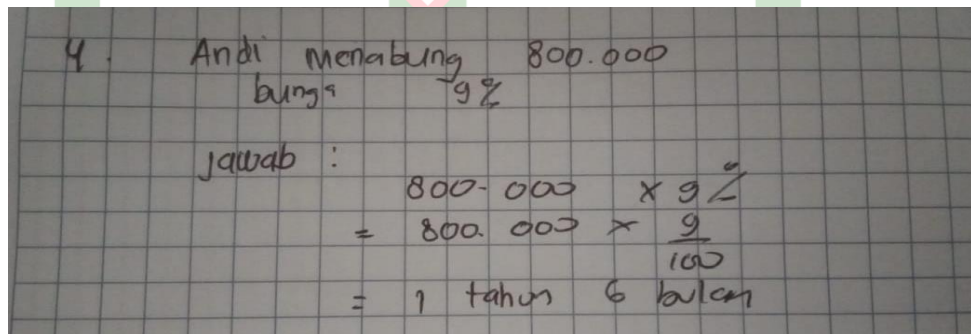 4. Andi menabung 800.000
bunga 9%
Jawab :
800.000 x 9%
= 800.000 x 9/100
= 1 tahun 6 bulan